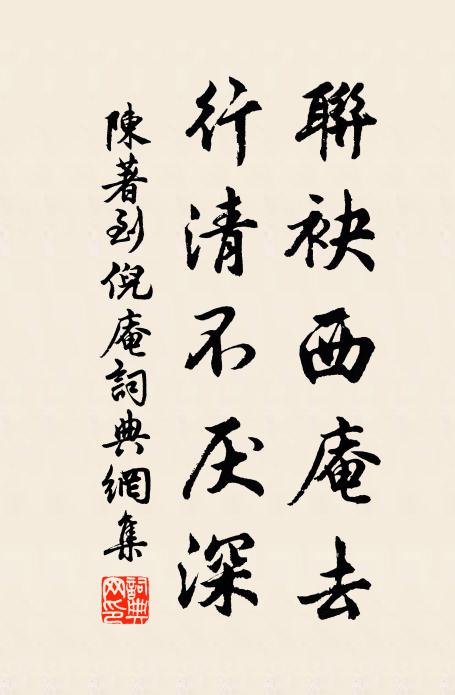 聯袂西庵去
行清不厌深
陳著到倪庵詞典網集
詞典网印